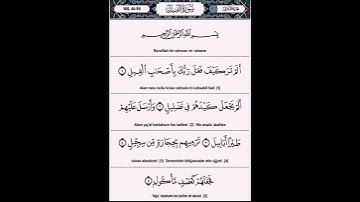 سورة الفيل
بِسْمِ اللَّهِ الرَّحْمَٰنِ الرَّحِيمِ
Bismillah hir rahman nir raheem
أَلَمْ تَرَ كَيْفَ فَعَلَ رَبُّكَ بِأَصْحَابِ الْفِيلِ ۝١
Alam tara kaifa fa'ala rabbuka bi ashaabil feel (1)
أَلَمْ يَجْعَلْ كَيْدَهُمْ فِي تَضْلِيلٍ ۝٢ وَأَرْسَلَ عَلَيْهِمْ
Alam yaj'al kaidahum fee tadleel (2) Wa arsala 'alaihim
طَيْرًا أَبَابِيلَ ۝٣ تَرْمِيهِم بِحِجَارَةٍ مِّن سِجِّيلٍ ۝٤
tairan abaabeel (3) Tarmeehim bihijaaratim min sijjeel (4)
فَجَعَلَهُمْ كَعَصْفٍ مَّأْكُولٍ ۝٥
Faja 'alahum ka'asfim m'akool (5)